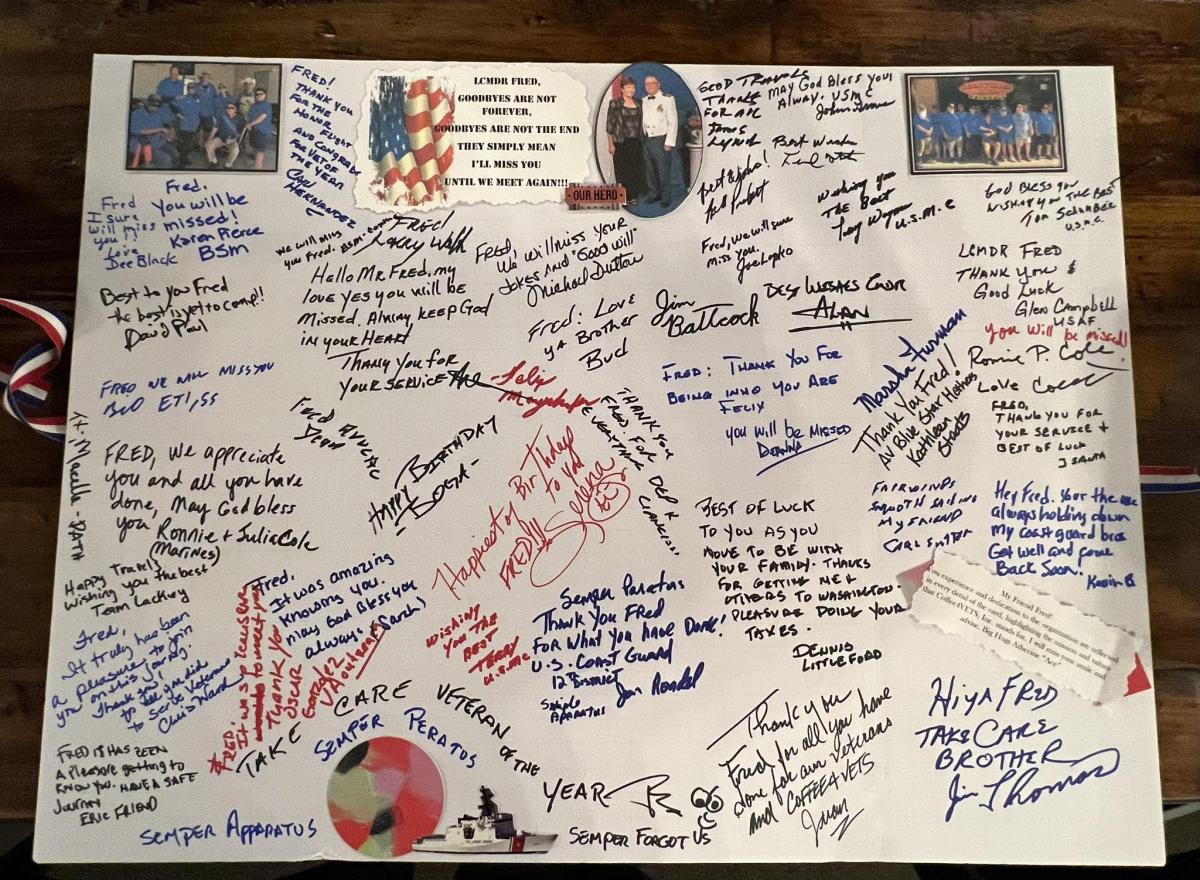 FRED!
THANK YOU
FOR THE
HONOR FLIGHT
AND CONGRATS
FOR VET OF
THE YEAR
HERNANDEZ
LCMDR FRED,
GOODBYES ARE NOT
FOREVER,
GOODBYES ARE NOT THE END
THEY SIMPLY MEAN
I'LL MISS YOU
UNTIL WE MEET AGAIN!!!
OUR HERO
GOOD TRAVELS
THANKS
FOR ALL
James
Lynch
MAY GOD BLESS YOU
ALWAY. USMC
Best Wishes
Best Wishes!
Wishing you
THE BEST
U.S.M.C
GOD BLESS YOU
WISH YOU THE BEST
TOM
U.S.M.C.
Fred
I sure
will miss
you!!
Love
Dee Black
Fred,
You will be
missed!
Karen Pierce
BSM
We will miss
you Fred.
FRED
FRED,
We will miss your
Jokes AND "Good will"
Michael Dutton
Fred, we will sure
miss you.
Joe Lopko
LCMDR FRED
THANK YOU &
Good Luck
Glen Campbell
USAF
Best to you Fred
the best is yet to come!!
David Paul
Hallo Mr. FRED. my
love yes you will be
Missed. Always keep God
in your Heart
THANK YOU FOR
YOUR SERVICE
Fred: Love
YA Brother
Bud
Jim
Battcock
BEST WISHES CMDR
ALAN
You will be missed!
Ronnie P. Cole
Love
FRED WE WILL MISS YOU
Felix
FRED: THANK YOU FOR
BEING WHO YOU ARE
FELIX
you will be MISSED
DIANNA
Marsha Furman
Thank You Fred!
AV Blue Star Mothers
Kathleen
Staats
FRED,
THANK YOU FOR
YOUR SERVICE +
BEST OF LUCK
J SANTA
HAPPY BIRTHDAY
THANK YOU
FRED, FOR
EVERYTHING
FRED, We appreciate
you and all you have
done, May God bless
you Ronnie + Julia Cole
(Marines)
Happiest of Birthdays
to You
FRED!!!
Selena
BEST OF LUCK
TO YOU AS YOU
MOVE TO BE WITH
YOUR FAMILY. THANKS
FOR GETTING ME &
OTHERS TO WASHINGTON
PLEASURE DOING YOUR
TAXES.
DENNIS
LITTLEFORD
FAIR WINDS
SMOOTH SAILING
MY FRIEND
Hey Fred. Your the one
always holding down
my coast guard bros
Get well and come
Back Soon.
Kevin B.
Happy Travels
Wishing you the best
Team Lackey
Fred,
It was amazing
knowing you.
May God Bless you
always
FRED!
It was a pleasure
to meet you
Thank you
OSCAR
Gonzalez
Wishing
you THE
BEST
TERRY
U.S.MC
Semper Paratus
Thank You FRED
FOR What You have Done!
U.S. Coast Guard
12th District
Semper
APPARATUS
My Friend Fred!
in every detail of the card, highlighting the mission and values
that Coffee4VETS, Inc. stands for. I will miss your smile and
Fred,
It truly has been
a pleasure to join
you on this journey.
Thank you
to serve Veterans
Chris Ward
TAKE CARE VETERAN OF THE YEAR
SEMPER PERATUS
FRED IT HAS BEEN
A Pleasure getting to
KNOW YOU. HAVE A SAFE
Journey
ERIC FRIEND
SEMPER APPARATUS
SEMPER FORGOT US
Thank you
Fred for all you have
done for our veterans
and COFFEE4VETS
Juan
HIYA FRED
TAKE CARE
BROTHER
Jim Thomas